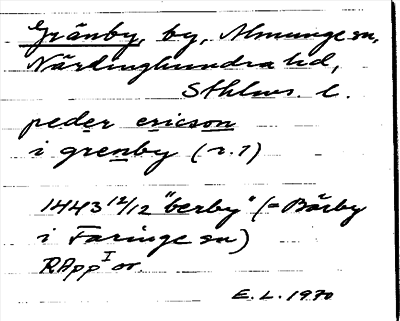 Gränby, by, Almunge sn,
Närdinghundra hd,
Sthlms. l.
peder ericson
i grenby (r. 1)
1443 12/12 "berby" (= Bärby
i Faringe sn)
RApp I or.
E. L. 1970